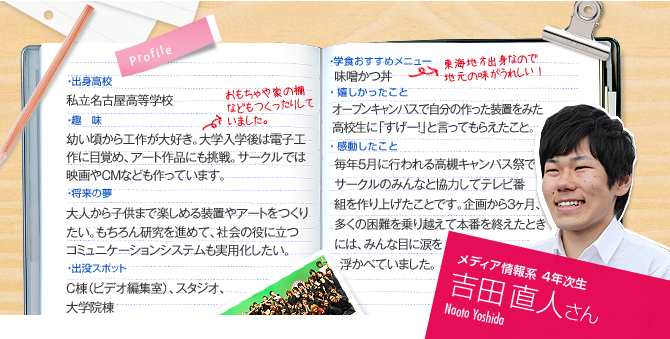 Profile
・出身高校
私立名古屋高等学校
・趣　味
おもちゃや家の棚
などもつくったりして
いました。
幼い頃から工作が大好き。大学入学後は電子工
作に目覚め、アート作品にも挑戦。サークルでは
映画やCMなども作っています。
・将来の夢
大人から子供まで楽しめる装置やアートをつくり
たい。もちろん研究を進めて、社会の役に立つ
コミュニケーションシステムも実用化したい。
・出没スポット
C棟（ビデオ編集室）、スタジオ、
大学院棟
・学食おすすめメニュー
味噌かつ丼
東海地方出身なので
地元の味がうれしい！
・嬉しかったこと
オープンキャンパスで自分の作った装置をみた
高校生に「すげー！」と言ってもらえたこと。
・感動したこと
毎年5月に行われる高槻キャンパス祭で
サークルのみんなと協力してテレビ番
組を作り上げたことです。企画から3ヶ月、
多くの困難を乗り越えて本番を終えたとき
には、みんな目に涙を
浮かべていました。
メディア情報系 4年次生
吉田 直人さん
Naoto Yoshida